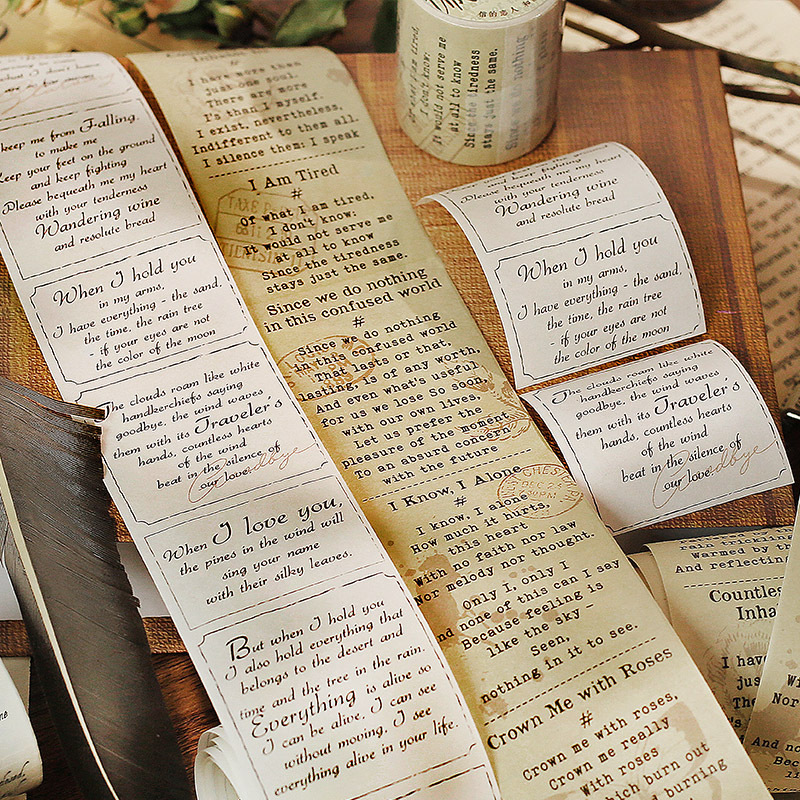 keep me from Falling.
to make me
Keep your feet on the ground
and keep fighting
Please bequeath me my heart
with your tenderness
Wandering wine
and resolute bread
When I hold you
in my arms,
I have everything - the sand,
the time, the rain tree
- if your eyes are not
the color of the moon
The clouds roam like white
handkerchiefs saying
goodbye, the wind waves
them with its Traveler's
hands, countless hearts
of the wind
beat in the silence of
our love
Goodbye
When I love you,
the pines in the wind will
sing your name
with their silky leaves.
But when I hold you
I also hold everything that
belongs to the desert and
time and the tree in the rain.
Everything is alive so
I can be alive, I can see
without moving, I see
everything alive in your life.
I have more than
just one soul.
There are more
I's than I myself.
I exist, nevertheless,
Indifferent to them all.
I silence them: I speak
I Am Tired
#
Of what I am tired,
I don't know:
It would not serve me
at all to know
Since the tiredness
stays just the same.
Since we do nothing
in this confused world
#
Since we do nothing
in this confused world
That lasts or that,
lasting is of any worth,
And even what's useful
for us we lose So soon,
with our own lives,
Let us prefer the
pleasure of the moment
To an absurd concern
with the future
I Know, I Alone
#
I know, I alone
How much it hurts,
this heart
With no faith nor law
Nor melody nor thought.
Only I, only I
And none of this can I say
Because feeling is
like the sky -
Seen,
nothing in it to see.
Crown Me with Roses
#
Crown me with roses,
Crown me really
With roses
which burn out
burning
I don't know:
It would not serve me
at all to know
Since the tiredness
stays just the same.
Please bequeath me my heart
with your tenderness
Wandering wine
and resolute bread
When I hold you
in my arms,
I have everything - the sand,
the time, the rain tree
- if your eyes are not
the color of the moon
The clouds roam like white
handkerchiefs saying
goodbye, the wind waves
them with its Traveler's
hands, countless hearts
of the wind
beat in the silence of
our love
Goodbye
Warmed by th
And reflectin
Countles
Inha
I hav
jus
The
Nor
And no
Bec